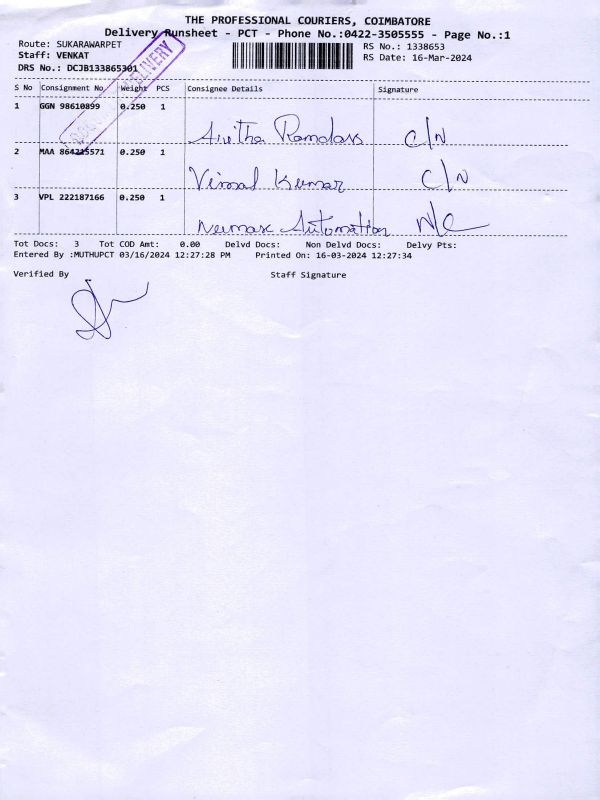 THE PROFESSIONAL COURIERS, COIMBATORE
Delivery Runsheet - PCT - Phone No.:0422-3505555 - Page No.:1
Route: SUKARAWARPET
RS No.: 1338653
Staff: VENKAT
RS Date: 16-Mar-2024
DRS No.: DCJB133865301
DELIVERY
S No Consignment No Weight PCS Consignee Details Signature
1 GGN 98610899 0.250 1
Anitha Ramdass C/N
2 MAA 864215571 0.250 1
Vimal Kumar C/N
3 VPL 222187166 0.250 1
Neumax Automation N/C
Tot Docs: 3 Tot COD Amt: 0.00 Delvd Docs: Non Delvd Docs: Delvy Pts:
Entered By :MUTHUPCT 03/16/2024 12:27:28 PM Printed On: 16-03-2024 12:27:34
Verified By Staff Signature